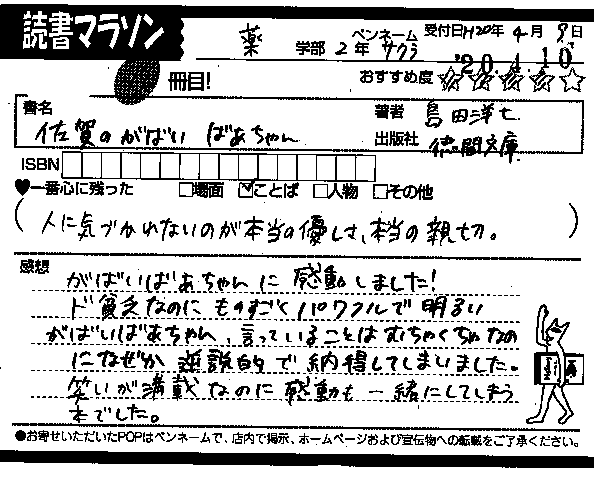 読書マラソン
薬 学部 2年 ペンネーム サクラ 受付日 H20年 4月 9日
'20.4.10
冊目! おすすめ度 ☆☆☆☆☆
書名 佐賀のがばいばあちゃん
著者 島田洋七
出版社 徳間文庫
ISBN
♥一番心に残った □場面 ☑ことば □人物 □その他
(人に気づかれないのが本当の優しさ、本当の親切。)
感想
がばいばあちゃんに感動しました!
ド貧乏なのにものすごくパワフルで明るい
がばいばあちゃん、言っていることはむちゃくちゃなの
になぜか逆説的で納得してしまいました。
笑いが満載なのに感動も一緒にしてしまう
本でした。
●お寄せいただいたPOPはペンネームで、店内で掲示、ホームページおよび宣伝物への転載をご了承ください。